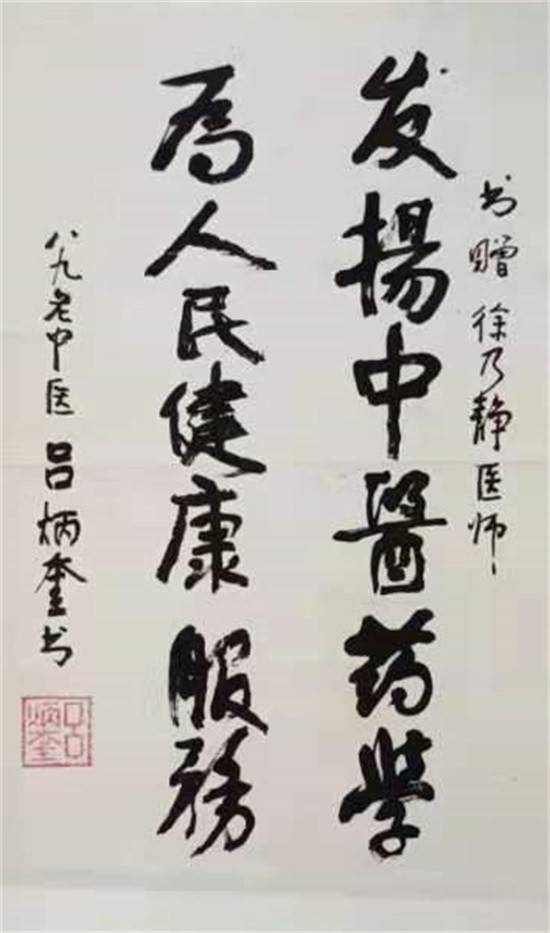 书赠徐乃静医师
发揚中醫药学
為人民健康服務
八九老中医 吕炳奎书
吕炳奎